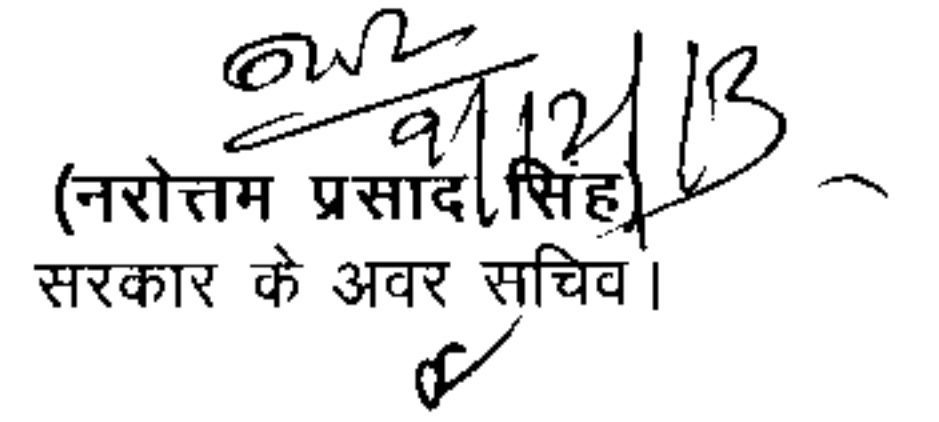 9/12/13
(नरोत्तम प्रसाद सिंह)
सरकार के अवर सचिव।